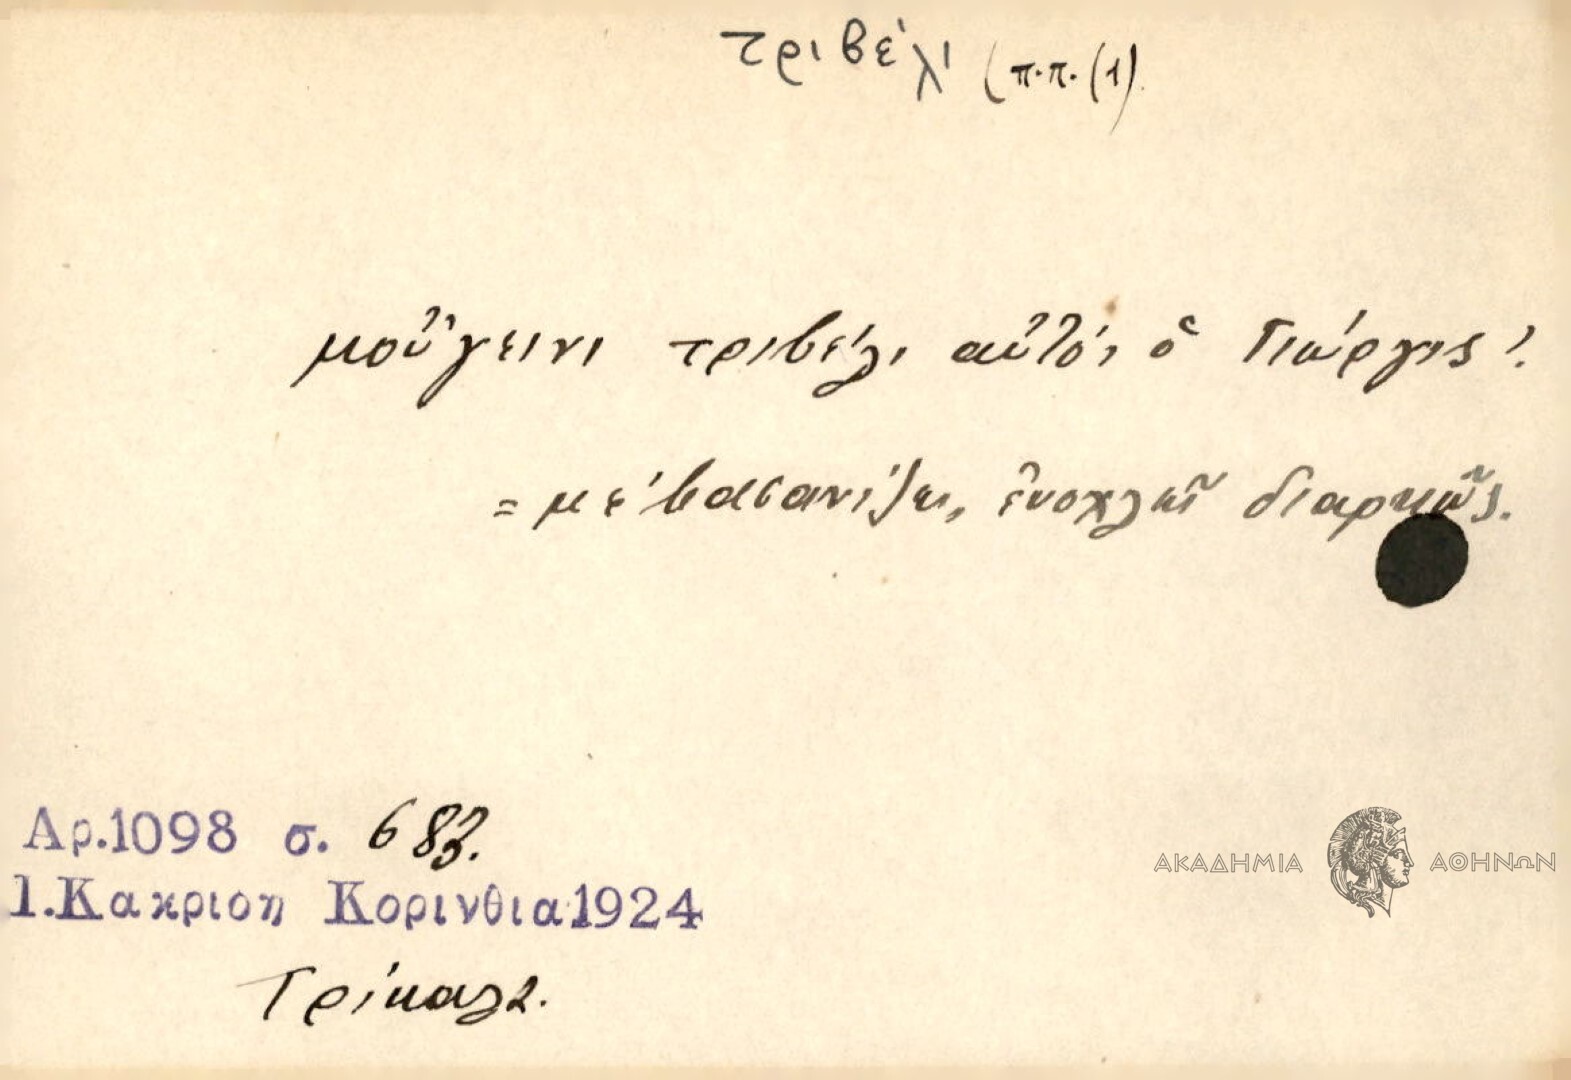 τριβέλι (π.π. (1)
μοὔγεινι τριβέλι αὐτός ὁ Γιώργης!
= μὲ βασανίζει, ἐνοχλεῖ διαρκῶς.
Αρ.1098 σ. 683.
Ι.Κακριση Κορινθια1924
Τρίκαλα.
ΑΚΑΔΗΜΙΑ ΑΘΗΝΩΝ